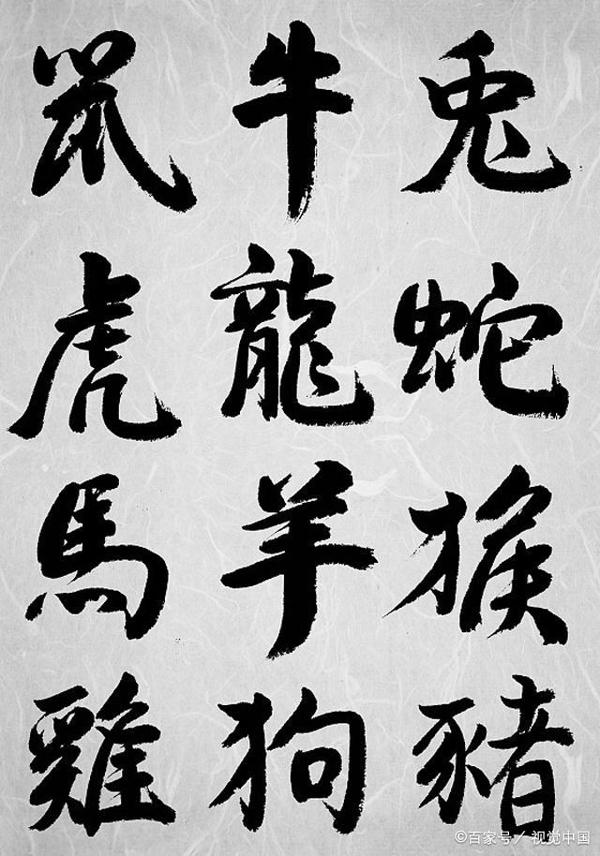 鼠 牛 兎
虎 龍 蛇
馬 羊 猴
雞 狗 豬
©百家号／视觉中国